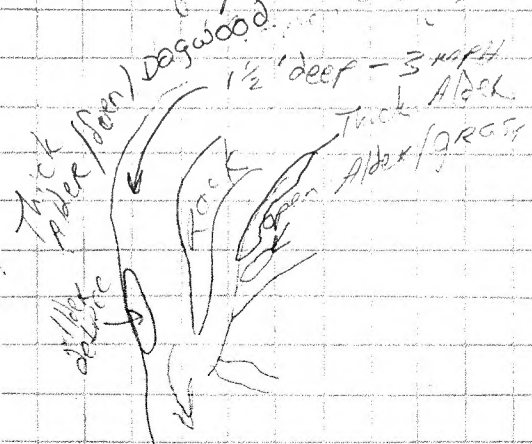 Thick
Alder/fern/Dogwood
1½' deep - 3 mph
Thick Alder
open Alder/grass
Rock
Alder